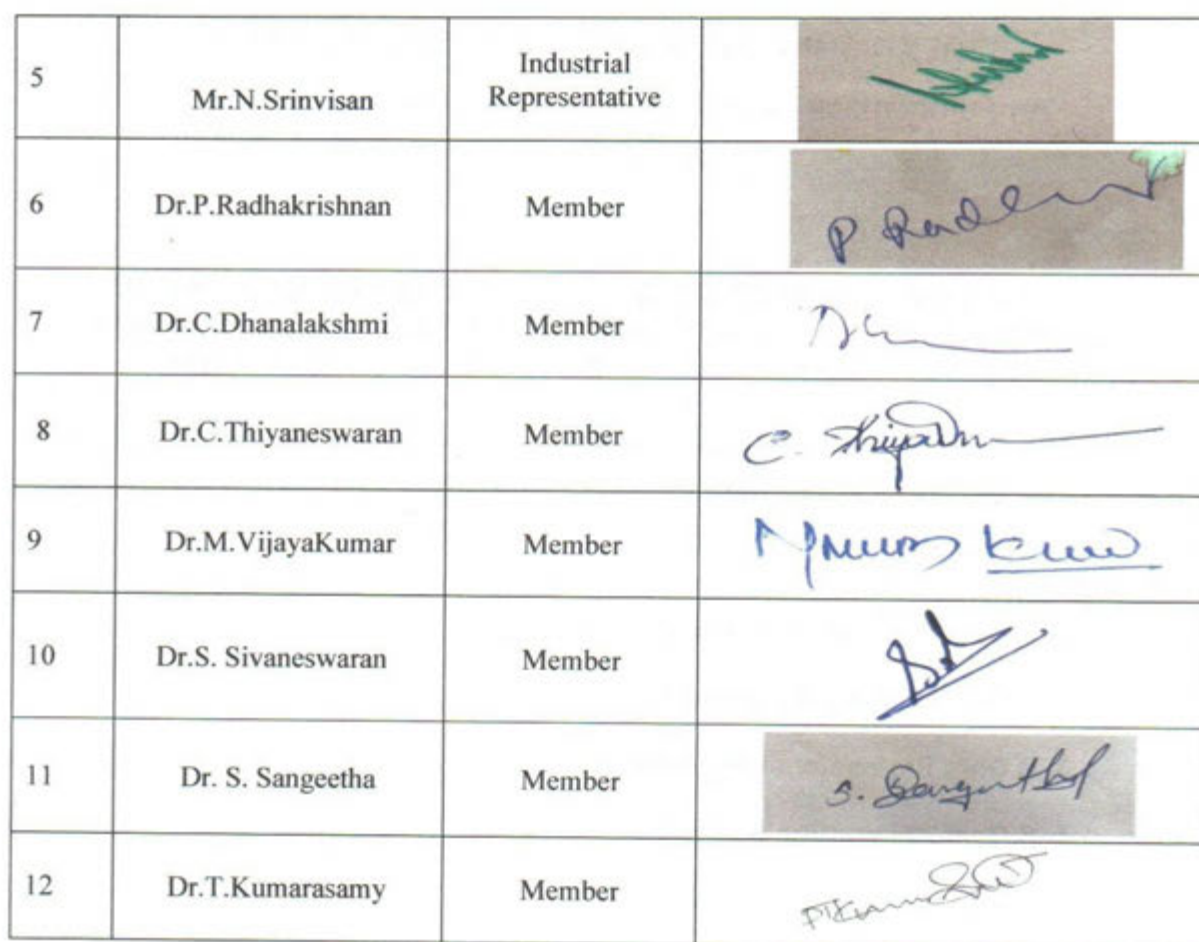 5
Mr.N.Srinvisan
Industrial
Representative
6
Dr.P.Radhakrishnan
Member
P
7
Dr.C.Dhanalakshmi
Member
8
Dr.C.Thiyaneswaran
Member
C.
9
Dr.M.VijayaKumar
Member
10
Dr.S. Sivaneswaran
Member
11
Dr. S. Sangeetha
Member
S.
12
Dr.T.Kumarasamy
Member